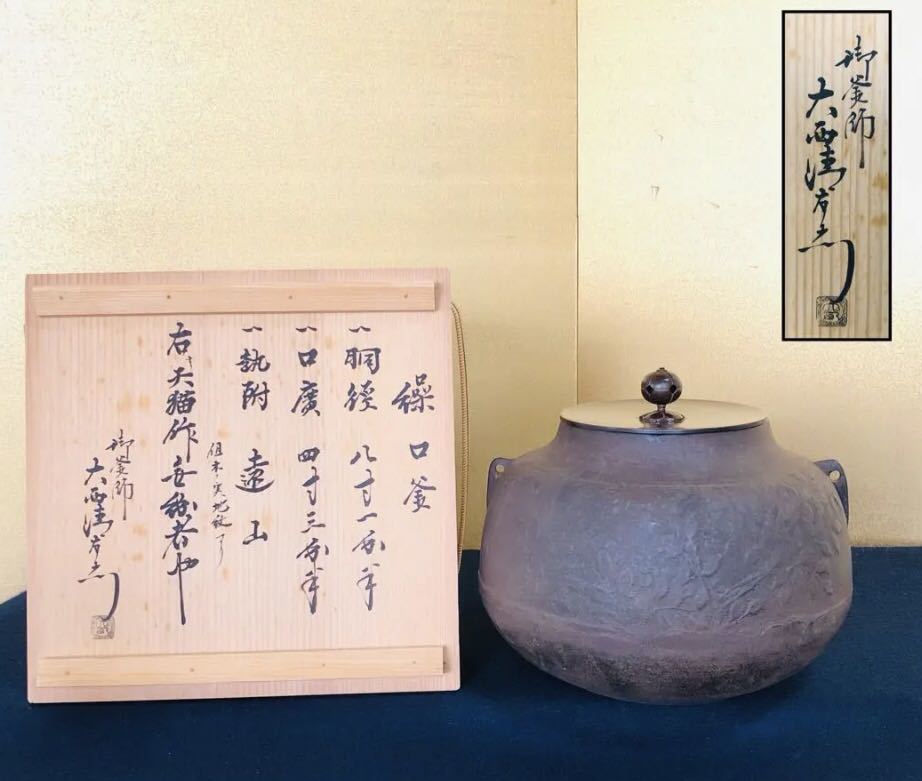 繰口釜
一 胴径 八寸一分半
一 口廣 四寸三分半
一 執附 遠山
但木ノ実地紋アリ
右ハ天猫作無疑者也
御釜師
大西清右衛門
御釜師
大西清右衛門